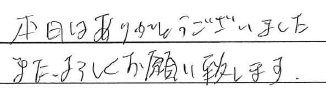 本日はありがとうございました
また、よろしくお願い致します.